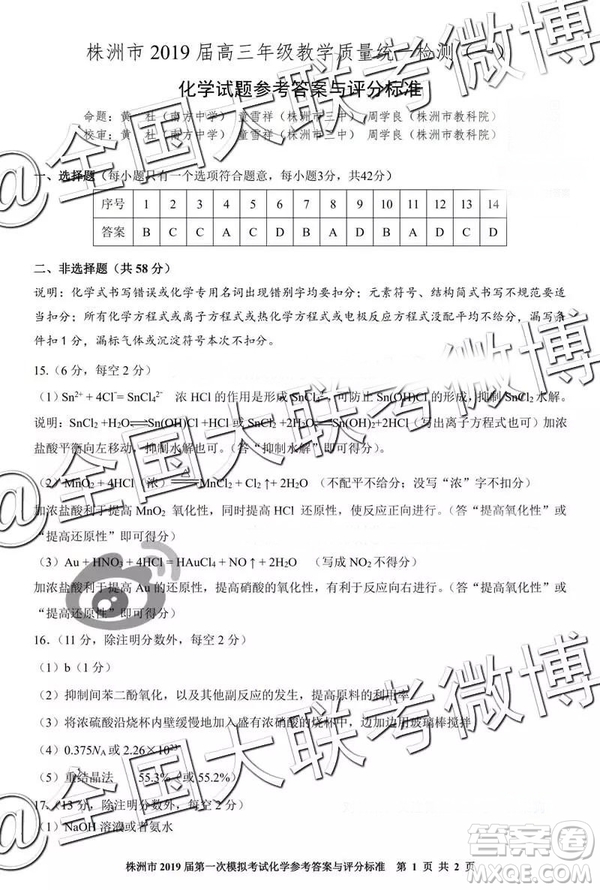 株洲市 2019 届高三年级教学质量统一检测(一)
化学试题参考答案与评分标准
命题：黄 杜（南方中学） 童雪祥（株洲市三中） 周学良（株洲市教科院）
校审：黄 杜（南方中学） 童雪祥（株洲市三中） 周学良（株洲市教科院）
一、选择题（每小题只有一个选项符合题意，每小题3分，共42分）
序号 1 2 3 4 5 6 7 8 9 10 11 12 13 14
答案 B C C A C D A D B A C D D B
二、非选择题（共 58 分）
说明：化学式书写错误或化学专用名词出现错别字均要扣分；元素符号、结构简式书写不规范要适
当扣分；所有化学方程式或离子方程式或热化学方程式或电极方程式没配平均不给分，漏写条
件扣 1 分，漏标气体或沉淀符号本次不扣分。
15.（6 分，每空 2 分）
（1）Sn²⁺ + 4Cl⁻= SnCl₄²⁻ 浓 HCl 的作用是形成 SnCl₄²⁻，可防止 Sn(OH)Cl 的形成，抑制 SnCl₂ 水解。
说明：SnCl₂ +H₂O⇌Sn(OH)Cl +HCl 或 SnCl₂ +2H₂O⇌Sn(OH)₂+2HCl（写出离子方程式也可）加浓
盐酸平衡向左移动，抑制水解也可以。（答“抑制水解”即可得分）
（2）MnO₂ + 4HCl（浓） MnCl₂ + Cl₂↑+ 2H₂O （不配平不给分；没写“浓”字不扣分）
加浓盐酸利于提高 MnO₂ 氧化性，同时提高 HCl 还原性，使反应正向进行。（答“提高氧化性”或
“提高还原性”即可得分）
（3）Au + HNO₃ + 4HCl = HAuCl₄ + NO↑ + 2H₂O （写成 NO₂不得分）
加浓盐酸利于提高 Au 的还原性，提高硝酸的氧化性，有利于反应向右进行。（答“提高氧化性”或
“提高还原性”即可得分）
16.（11 分，除注明分数外，每空 2 分）
（1）b（1 分）
（2）抑制间苯二酚氧化，以及其他副反应的发生，提高原料的利用率
（3）将浓硫酸沿烧杯内壁缓慢地加入盛有浓硝酸的烧杯中，边加边用玻璃棒搅拌
（4）0.375Nₐ或 2.26×10²³
（5）重结晶法 55.3%（或 55.2%）
17.（13 分，除注明分数外，每空 2 分）
（1）NaOH 溶液或者氨水
株洲市 2019 届第一次模拟考试化学参考答案与评分标准 第 1 页 共 2 页
@全国大联考微博
@全国大联考微博
@全国大联考微博
作业答案